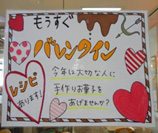 もうすぐ
バレンタイン
レシピ
あります!
今年は大切な人に
手作りお菓子を
あげませんか?